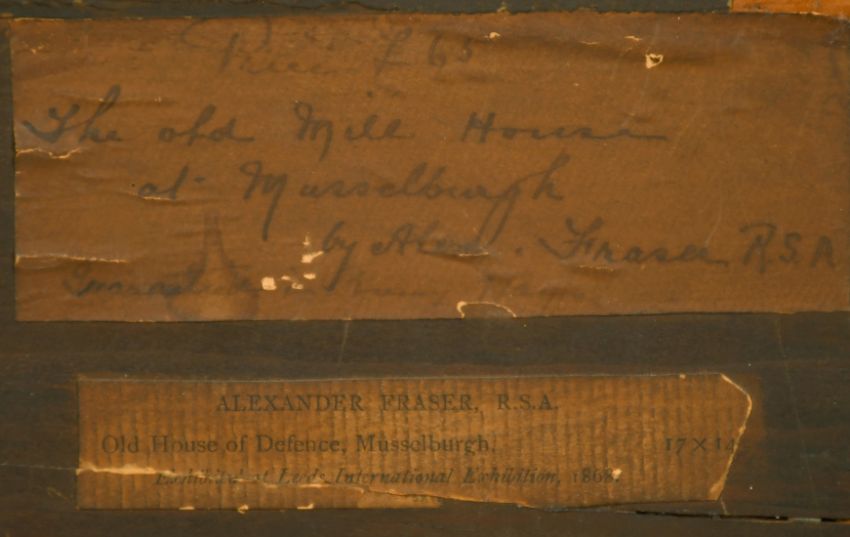 Price £65
The old Mill House
at Musselburgh
by Alex. Fraser R.S.A
ALEXANDER FRASER, R.S.A.
Old House of Defence, Musselburgh. 17 × 14
Exhibited at Leeds International Exhibition, 1868.